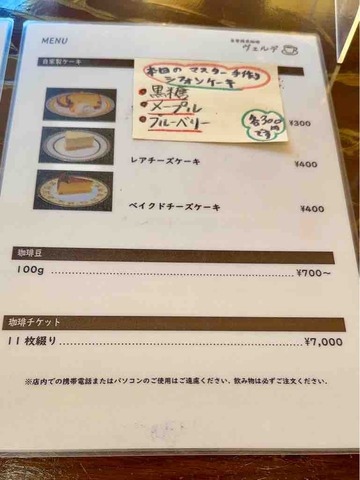 MENU
自家焙煎珈琲
ヴェルデ
自家製ケーキ
本日の マスター手作り
シフォンケーキ
・黒糖
・メープル
・ブルーベリー
各300円です
¥300
レアチーズケーキ ¥400
ベイクドチーズケーキ ¥400
珈琲豆
100g ¥700〜
珈琲チケット
11枚綴り ¥7,000
※店内での携帯電話またはパソコンのご使用はご遠慮ください。飲み物は必ずご注文ください。